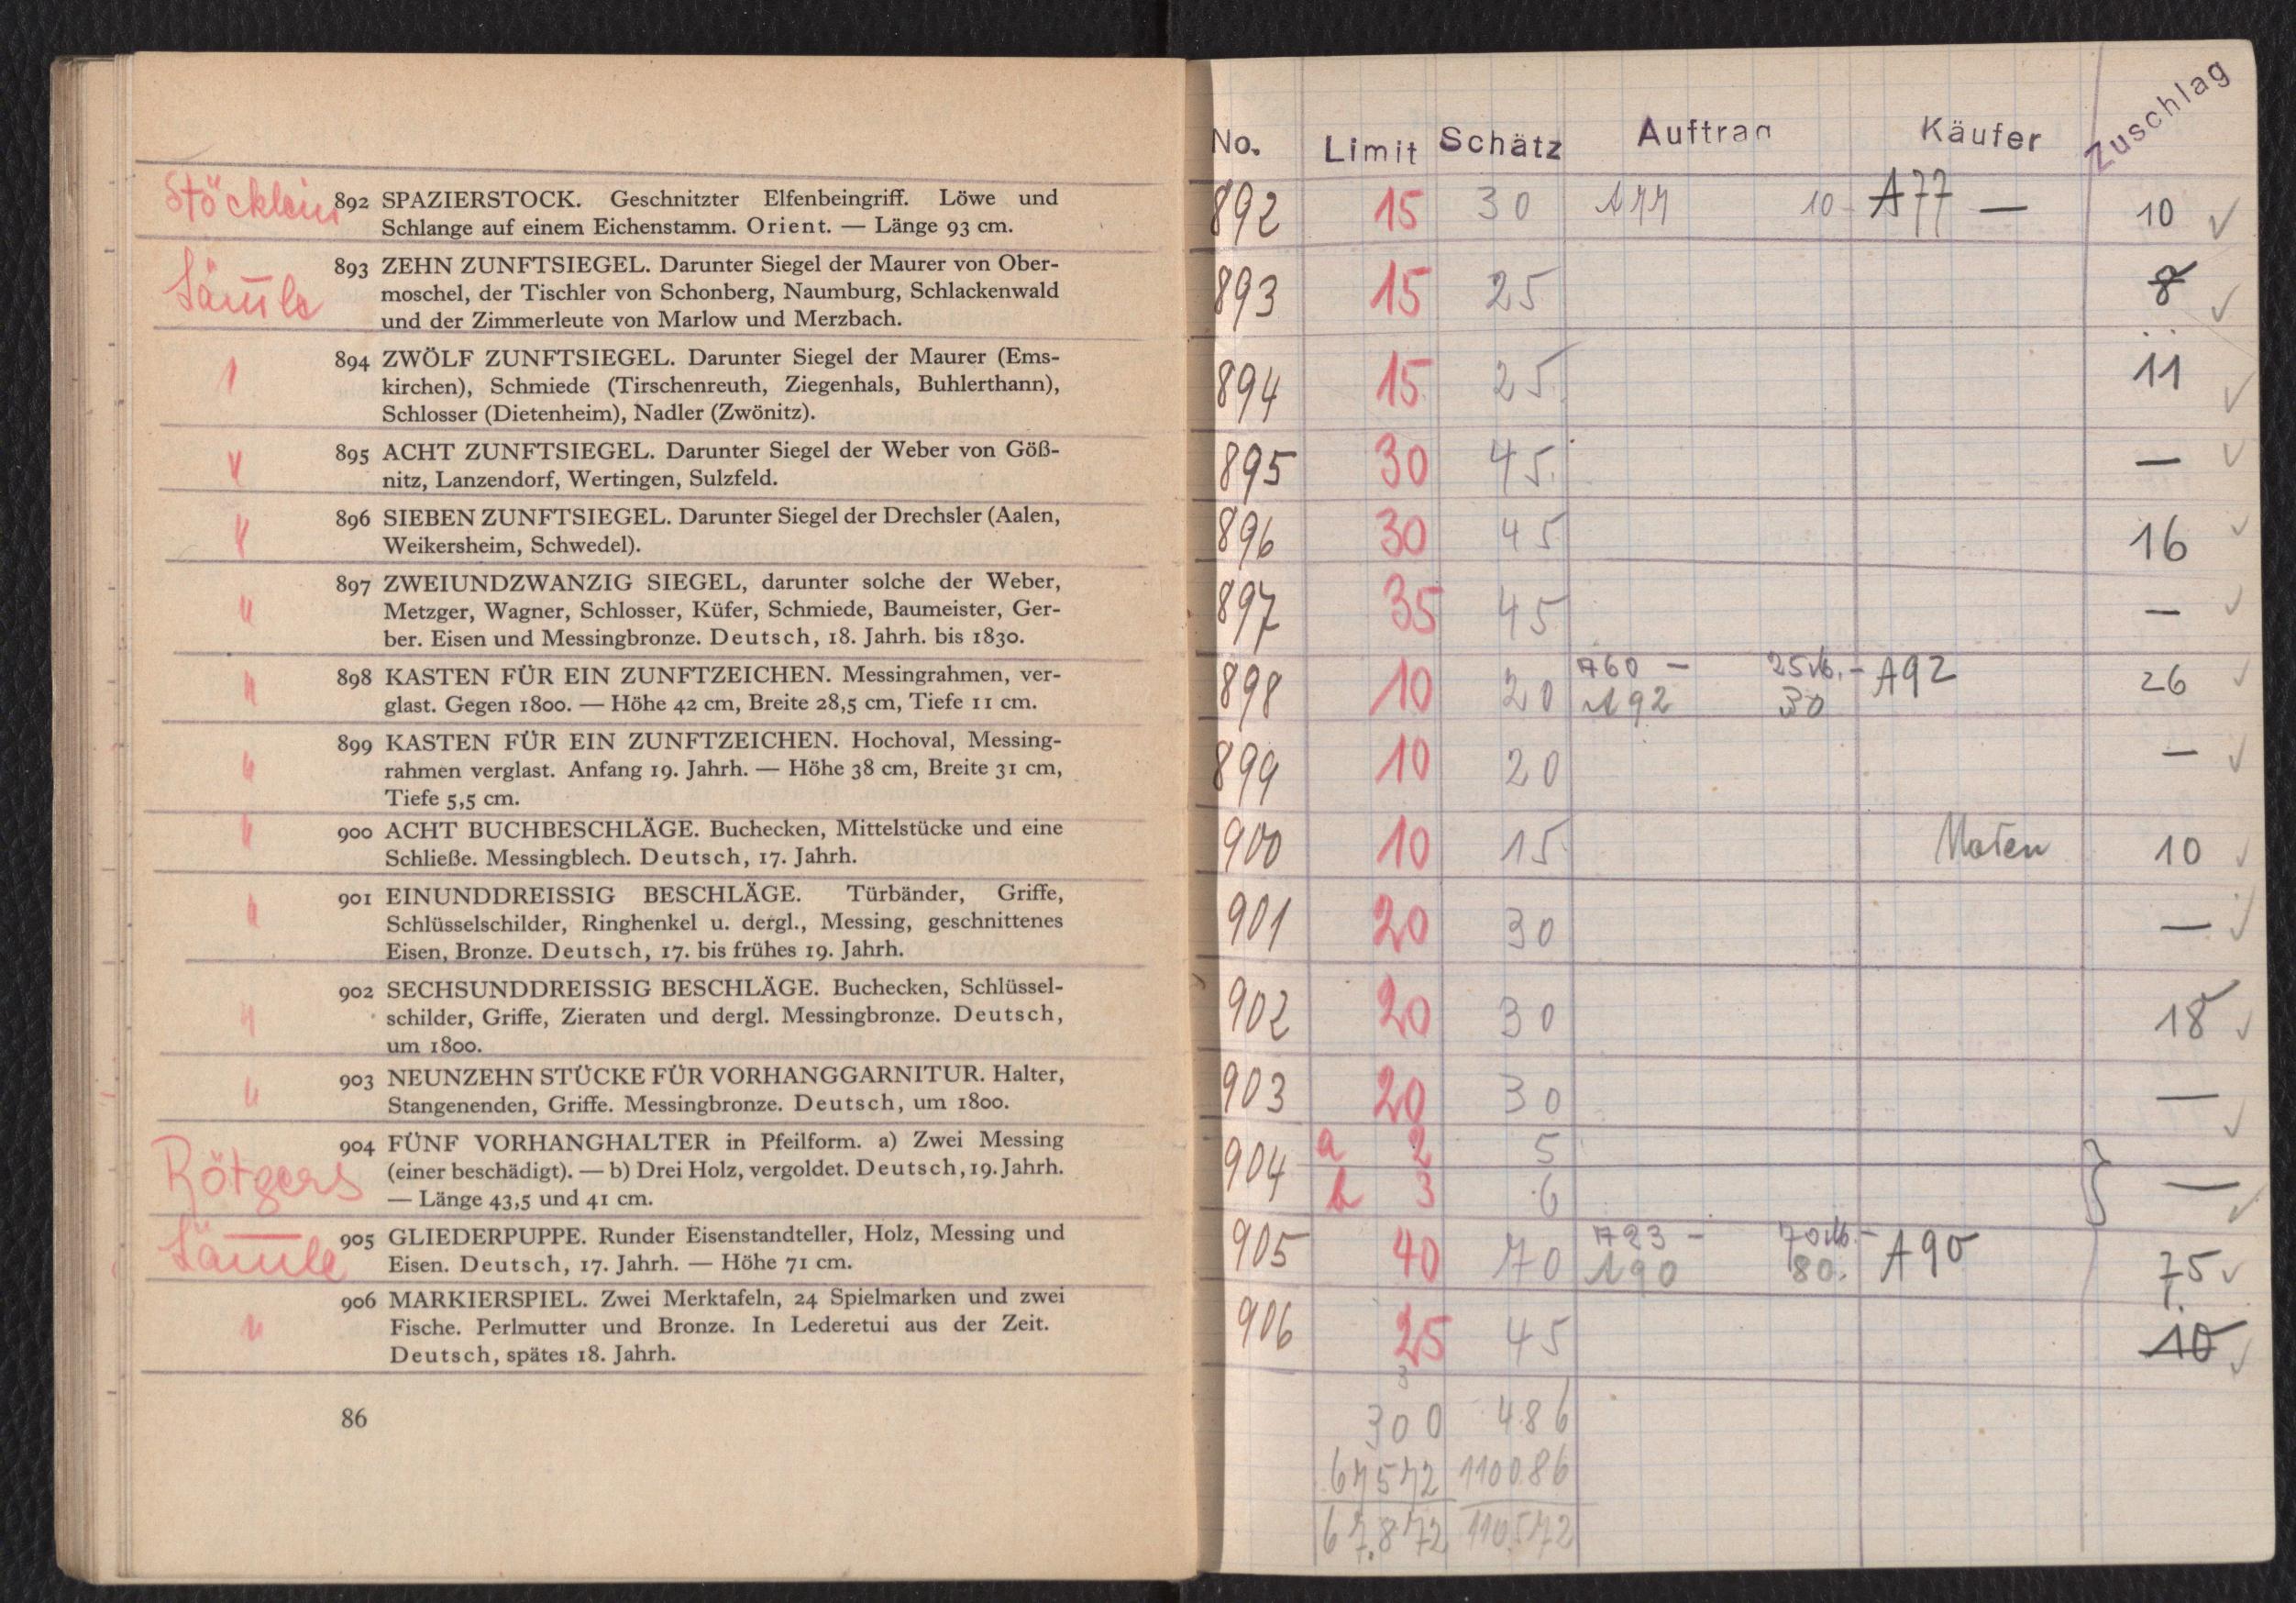 Stöcklein
892 SPAZIERSTOCK. Geschnitzter Elfenbeingriff. Löwe und
Schlange auf einem Eichenstamm. Orient. — Länge 93 cm.
893 ZEHN ZUNFTSIEGEL. Darunter Siegel der Maurer von Ober-
moschel, der Tischler von Schonberg, Naumburg, Schlackenwald
und der Zimmerleute von Marlow und Merzbach.
894 ZWÖLF ZUNFTSIEGEL. Darunter Siegel der Maurer (Ems-
kirchen), Schmiede (Tirschenreuth, Ziegenhals, Buhlerthann),
Schlosser (Dietenheim), Nadler (Zwönitz).
895 ACHT ZUNFTSIEGEL. Darunter Siegel der Weber von Göß-
nitz, Lanzendorf, Wertingen, Sulzfeld.
896 SIEBEN ZUNFTSIEGEL. Darunter Siegel der Drechsler (Aalen,
Weikersheim, Schwedel).
897 ZWEIUNDZWANZIG SIEGEL, darunter solche der Weber,
Metzger, Wagner, Schlosser, Küfer, Schmiede, Baumeister, Ger-
ber. Eisen und Messingbronze. Deutsch, 18. Jahrh. bis 1830.
898 KASTEN FÜR EIN ZUNFTZEICHEN. Messingrahmen, ver-
glast. Gegen 1800. — Höhe 42 cm, Breite 28,5 cm, Tiefe 11 cm.
899 KASTEN FÜR EIN ZUNFTZEICHEN. Hochoval, Messing-
rahmen verglast. Anfang 19. Jahrh. — Höhe 38 cm, Breite 31 cm,
Tiefe 5,5 cm.
900 ACHT BUCHBESCHLÄGE. Buchecken, Mittelstücke und eine
Schließe. Messingblech. Deutsch, 17. Jahrh.
901 EINUNDDREISSIG BESCHLÄGE. Türbänder, Griffe,
Schlüsselschilder, Ringhenkel u. dergl., Messing, geschnittenes
Eisen, Bronze. Deutsch, 17. bis frühes 19. Jahrh.
902 SECHSUNDDREISSIG BESCHLÄGE. Buchecken, Schlüssel-
schilder, Griffe, Zieraten und dergl. Messingbronze. Deutsch,
um 1800.
903 NEUNZEHN STÜCKE FÜR VORHANGGARNITUR. Halter,
Stangenenden, Griffe. Messingbronze. Deutsch, um 1800.
Rötgers
904 FÜNF VORHANGHALTER in Pfeilform. a) Zwei Messing
(einer beschädigt). — b) Drei Holz, vergoldet. Deutsch, 19. Jahrh.
— Länge 43,5 und 41 cm.
905 GLIEDERPUPPE. Runder Eisenstandteller, Holz, Messing und
Eisen. Deutsch, 17. Jahrh. — Höhe 71 cm.
906 MARKIERSPIEL. Zwei Merktafeln, 24 Spielmarken und zwei
Fische. Perlmutter und Bronze. In Lederetui aus der Zeit.
Deutsch, spätes 18. Jahrh.
86
No. Limit Schätz Auftrag Käufer Zuschlag
892 15 30 A77 10 A77 — 10 ✓
893 15 25 8 ✓
894 15 25 11 ✓
895 30 45 — ✓
896 30 45 16 ✓
897 35 45 — ✓
898 10 20 A60 — 25 A92 26 ✓
A92 30
899 10 20 — ✓
900 10 15 10 ✓
901 20 30 — ✓
902 20 30 18 ✓
903 20 30 — ✓
904 a 2 5 — ✓
b 3 6
905 40 70 A23 — 70 A90 75 ✓
A90 80
906 25 45 10 ✓
300 486
67572 110086
67.872 110.572